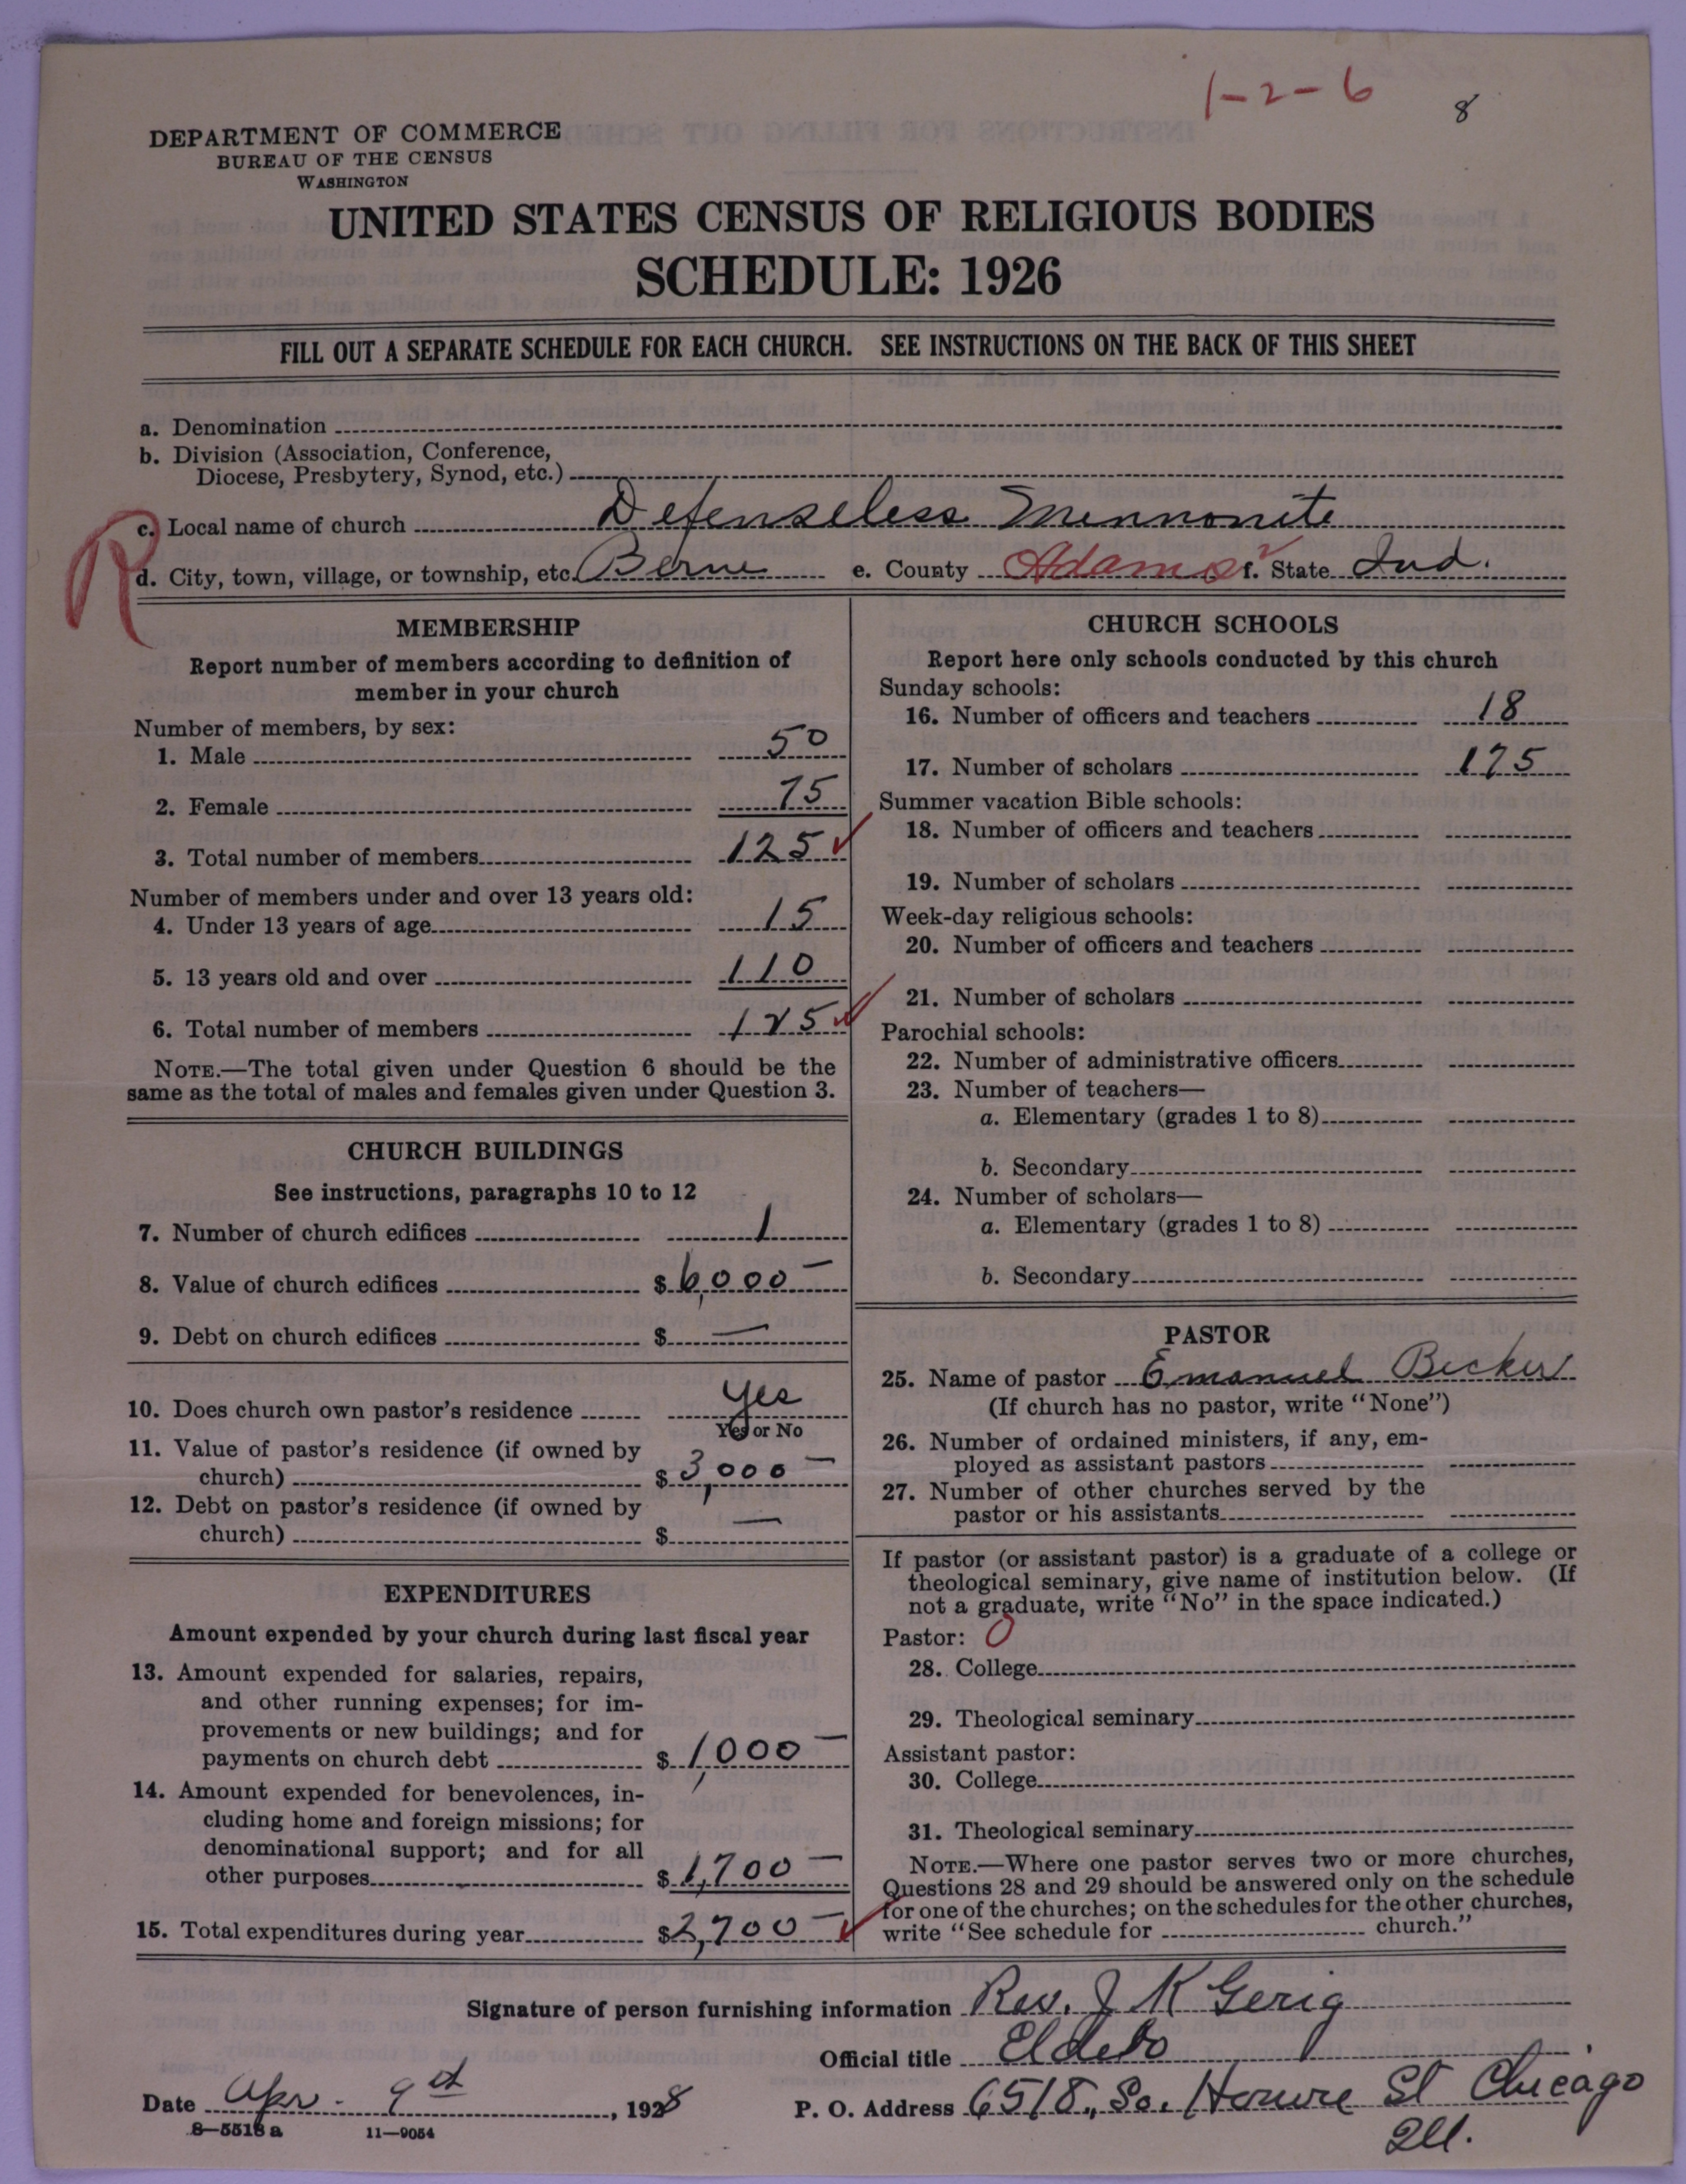 1-2-6
8
DEPARTMENT OF COMMERCE
BUREAU OF THE CENSUS
WASHINGTON
UNITED STATES CENSUS OF RELIGIOUS BODIES
SCHEDULE: 1926
FILL OUT A SEPARATE SCHEDULE FOR EACH CHURCH. SEE INSTRUCTIONS ON THE BACK OF THIS SHEET
a. Denomination
b. Division (Association, Conference,
Diocese, Presbytery, Synod, etc.)
c. Local name of church Defenseless Mennonite
R
d. City, town, village, or township, etc. Berne e. County Adams f. State Ind.
MEMBERSHIP
Report number of members according to definition of
member in your church
Number of members, by sex:
1. Male 50
2. Female 75
3. Total number of members 125
Number of members under and over 13 years old:
4. Under 13 years of age 15
5. 13 years old and over 110
6. Total number of members 125
NOTE.—The total given under Question 6 should be the
same as the total of males and females given under Question 3.
CHURCH BUILDINGS
See instructions, paragraphs 10 to 12
7. Number of church edifices 1
8. Value of church edifices $ 6,000 —
9. Debt on church edifices $ —
10. Does church own pastor's residence Yes
Yes or No
11. Value of pastor's residence (if owned by
church) $ 3,000 —
12. Debt on pastor's residence (if owned by
church) $ —
EXPENDITURES
Amount expended by your church during last fiscal year
13. Amount expended for salaries, repairs,
and other running expenses; for im-
provements or new buildings; and for
payments on church debt $ 1,000 —
14. Amount expended for benevolences, in-
cluding home and foreign missions; for
denominational support; and for all
other purposes $ 1,700 —
15. Total expenditures during year $ 2,700 —
CHURCH SCHOOLS
Report here only schools conducted by this church
Sunday schools:
16. Number of officers and teachers 18
17. Number of scholars 175
Summer vacation Bible schools:
18. Number of officers and teachers
19. Number of scholars
Week-day religious schools:
20. Number of officers and teachers
21. Number of scholars
Parochial schools:
22. Number of administrative officers
23. Number of teachers—
a. Elementary (grades 1 to 8)
b. Secondary
24. Number of scholars—
a. Elementary (grades 1 to 8)
b. Secondary
PASTOR
25. Name of pastor Emanuel Becker
(If church has no pastor, write "None")
26. Number of ordained ministers, if any, em-
ployed as assistant pastors
27. Number of other churches served by the
pastor or his assistants
If pastor (or assistant pastor) is a graduate of a college or
theological seminary, give name of institution below. (If
not a graduate, write "No" in the space indicated.)
Pastor: 0
28. College
29. Theological seminary
Assistant pastor:
30. College
31. Theological seminary
NOTE.—Where one pastor serves two or more churches,
Questions 28 and 29 should be answered only on the schedule
for one of the churches; on the schedules for the other churches,
write "See schedule for church."
Signature of person furnishing information Rev. J K Gerig
Official title Elder
Date Apr. 9th, 1928 P. O. Address 6518, So. Honore St Chicago
Ill.
8—5518 a 11—9054